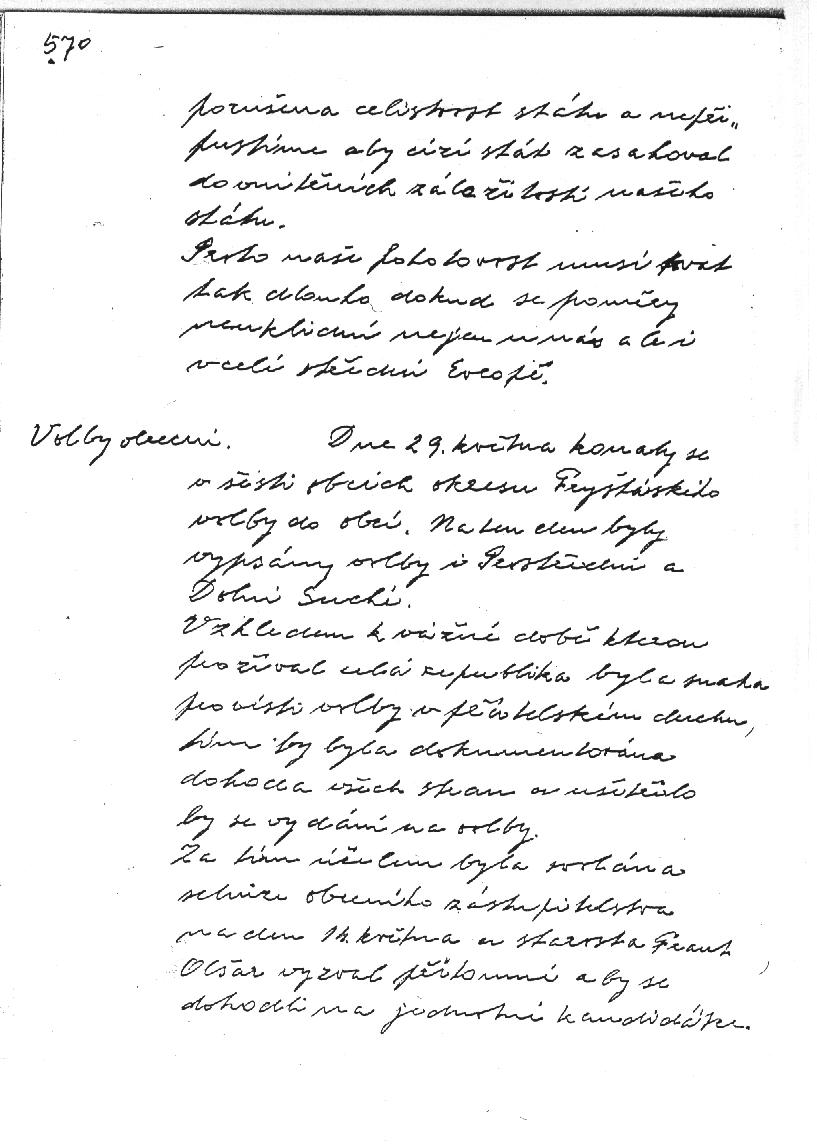 570
porušena celistvost státu a nepři„
pustíme aby cizí stát zasahoval
do vnitřních záležitostí našeho
státu.
Proto naše pohotovost musí trvat
tak dlouho dokud se poměry
neuklidní nejen u nás ale i
v celé střední Evropě.
Volby obecní. Dne 29. května konaly se
v šesti obcích okresu Fryštátského
volby do obcí. Na ten den byly
vypsány volby i Prostřední a
Dolní Suché.
Vzhledem k vážné době kterou
prožíval celá republika byla snaha
provésti volby v přátelském duchu,
tím by byla dokumentována
dohoda všech stran a ušetřilo
by se vydání na volby.
Za tím účelem byla svolána
schůze obecního zastupitelstva
na den 14. května a starosta Frant,
Olšar vyzval přítomné aby se
dohodli na jednotné kandidátce.